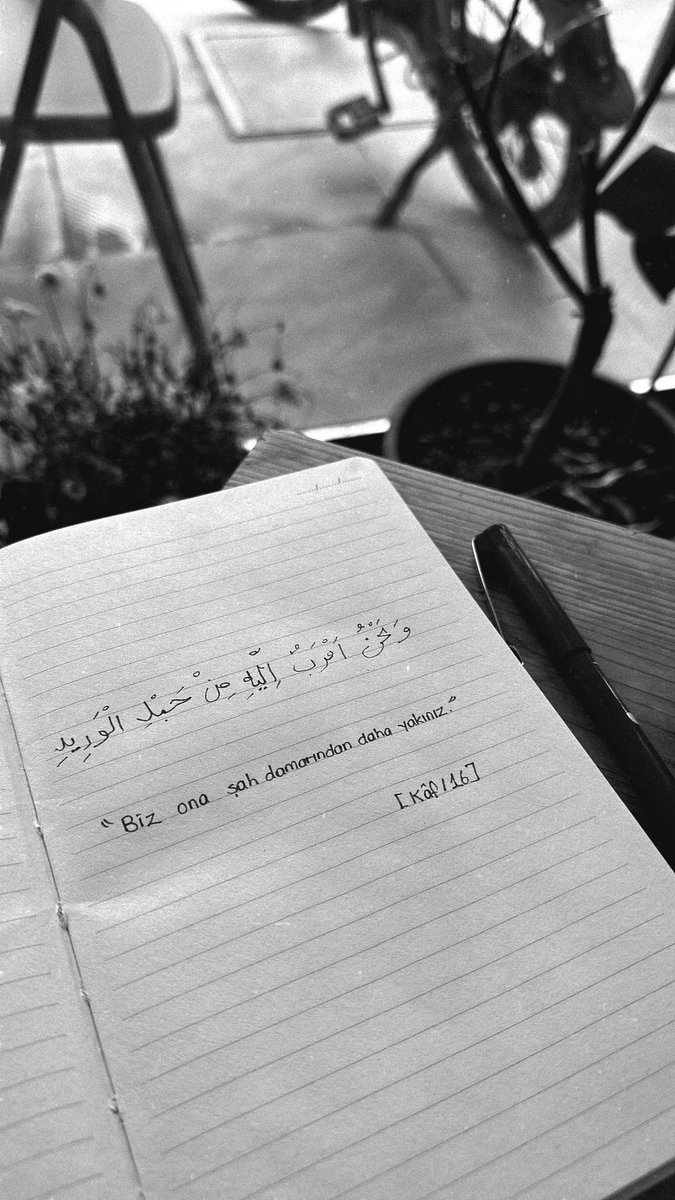 وَنَحْنُ اَقْرَبُ اِلَيْهِ مِنْ حَبْلِ الْوَرِيدِ
“Biz ona şah damarından daha yakınız.”
[Kâf/16]